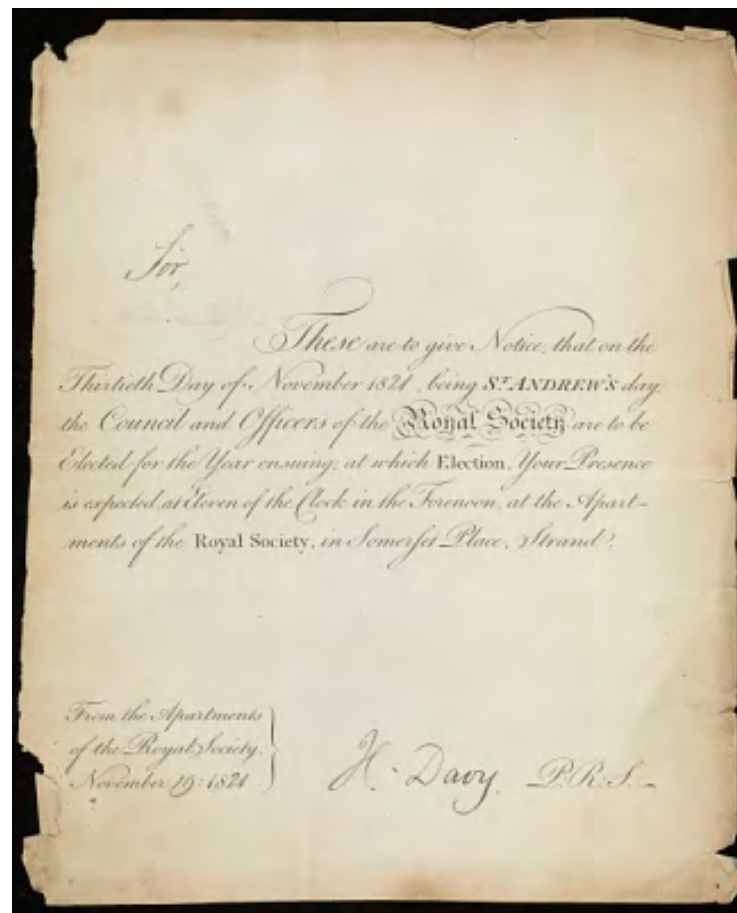 Sir,
These are to give Notice, that on the
Thirtieth Day of November 1821, being St. ANDREW'S day,
the Council and Officers of the Royal Society are to be
Elected for the Year ensuing; at which Election, Your Presence
is expected, at Eleven of the Clock in the Forenoon, at the Apart-
ments of the Royal Society, in Somerset Place, Strand.
From the Apartments
of the Royal Society.
November 19: 1821
H. Davy. P.R.S.